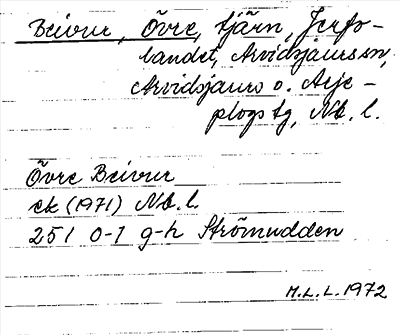 Beivur, Övre, tjärn, Jerfo-
landet, Arvidsjaurs sn,
Arvidsjaurs o. Arje-
plogs tg, Nb. l.
Övre Beivur
ek (1971) Nb. l.
25 I 0-1 g-h Strömudden
M.L.L. 1972